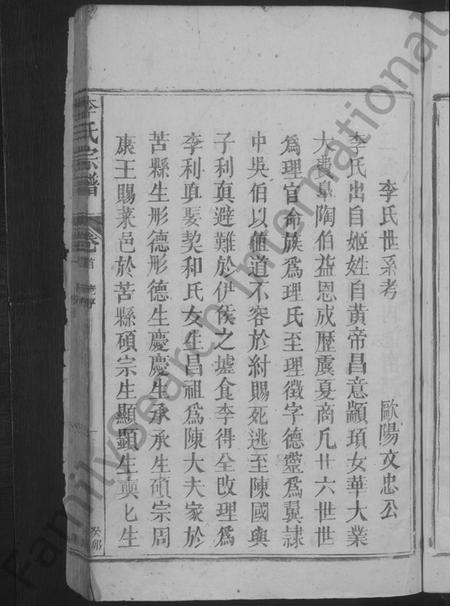 李氏世系考
歐陽文忠公
李氏出自姬姓自黃帝昌意顓頊女華大業
大費皐陶伯益恩成歷虞夏商凡廿六世世
爲理官命族爲理氏至理徵字德靈爲翼隷
中吳伯以直道不容於紂賜死逃至陳國與
子利真避難於伊侯之墟食李得全改理爲
李利真娶契和氏女生昌祖爲陳大夫家於
苦縣生形德形德生慶慶生承承生碩宗周
康王賜菜邑於苦縣碩宗生顯顯生奭奭生
李氏宗譜
卷首
癸卯
FamilySearch International